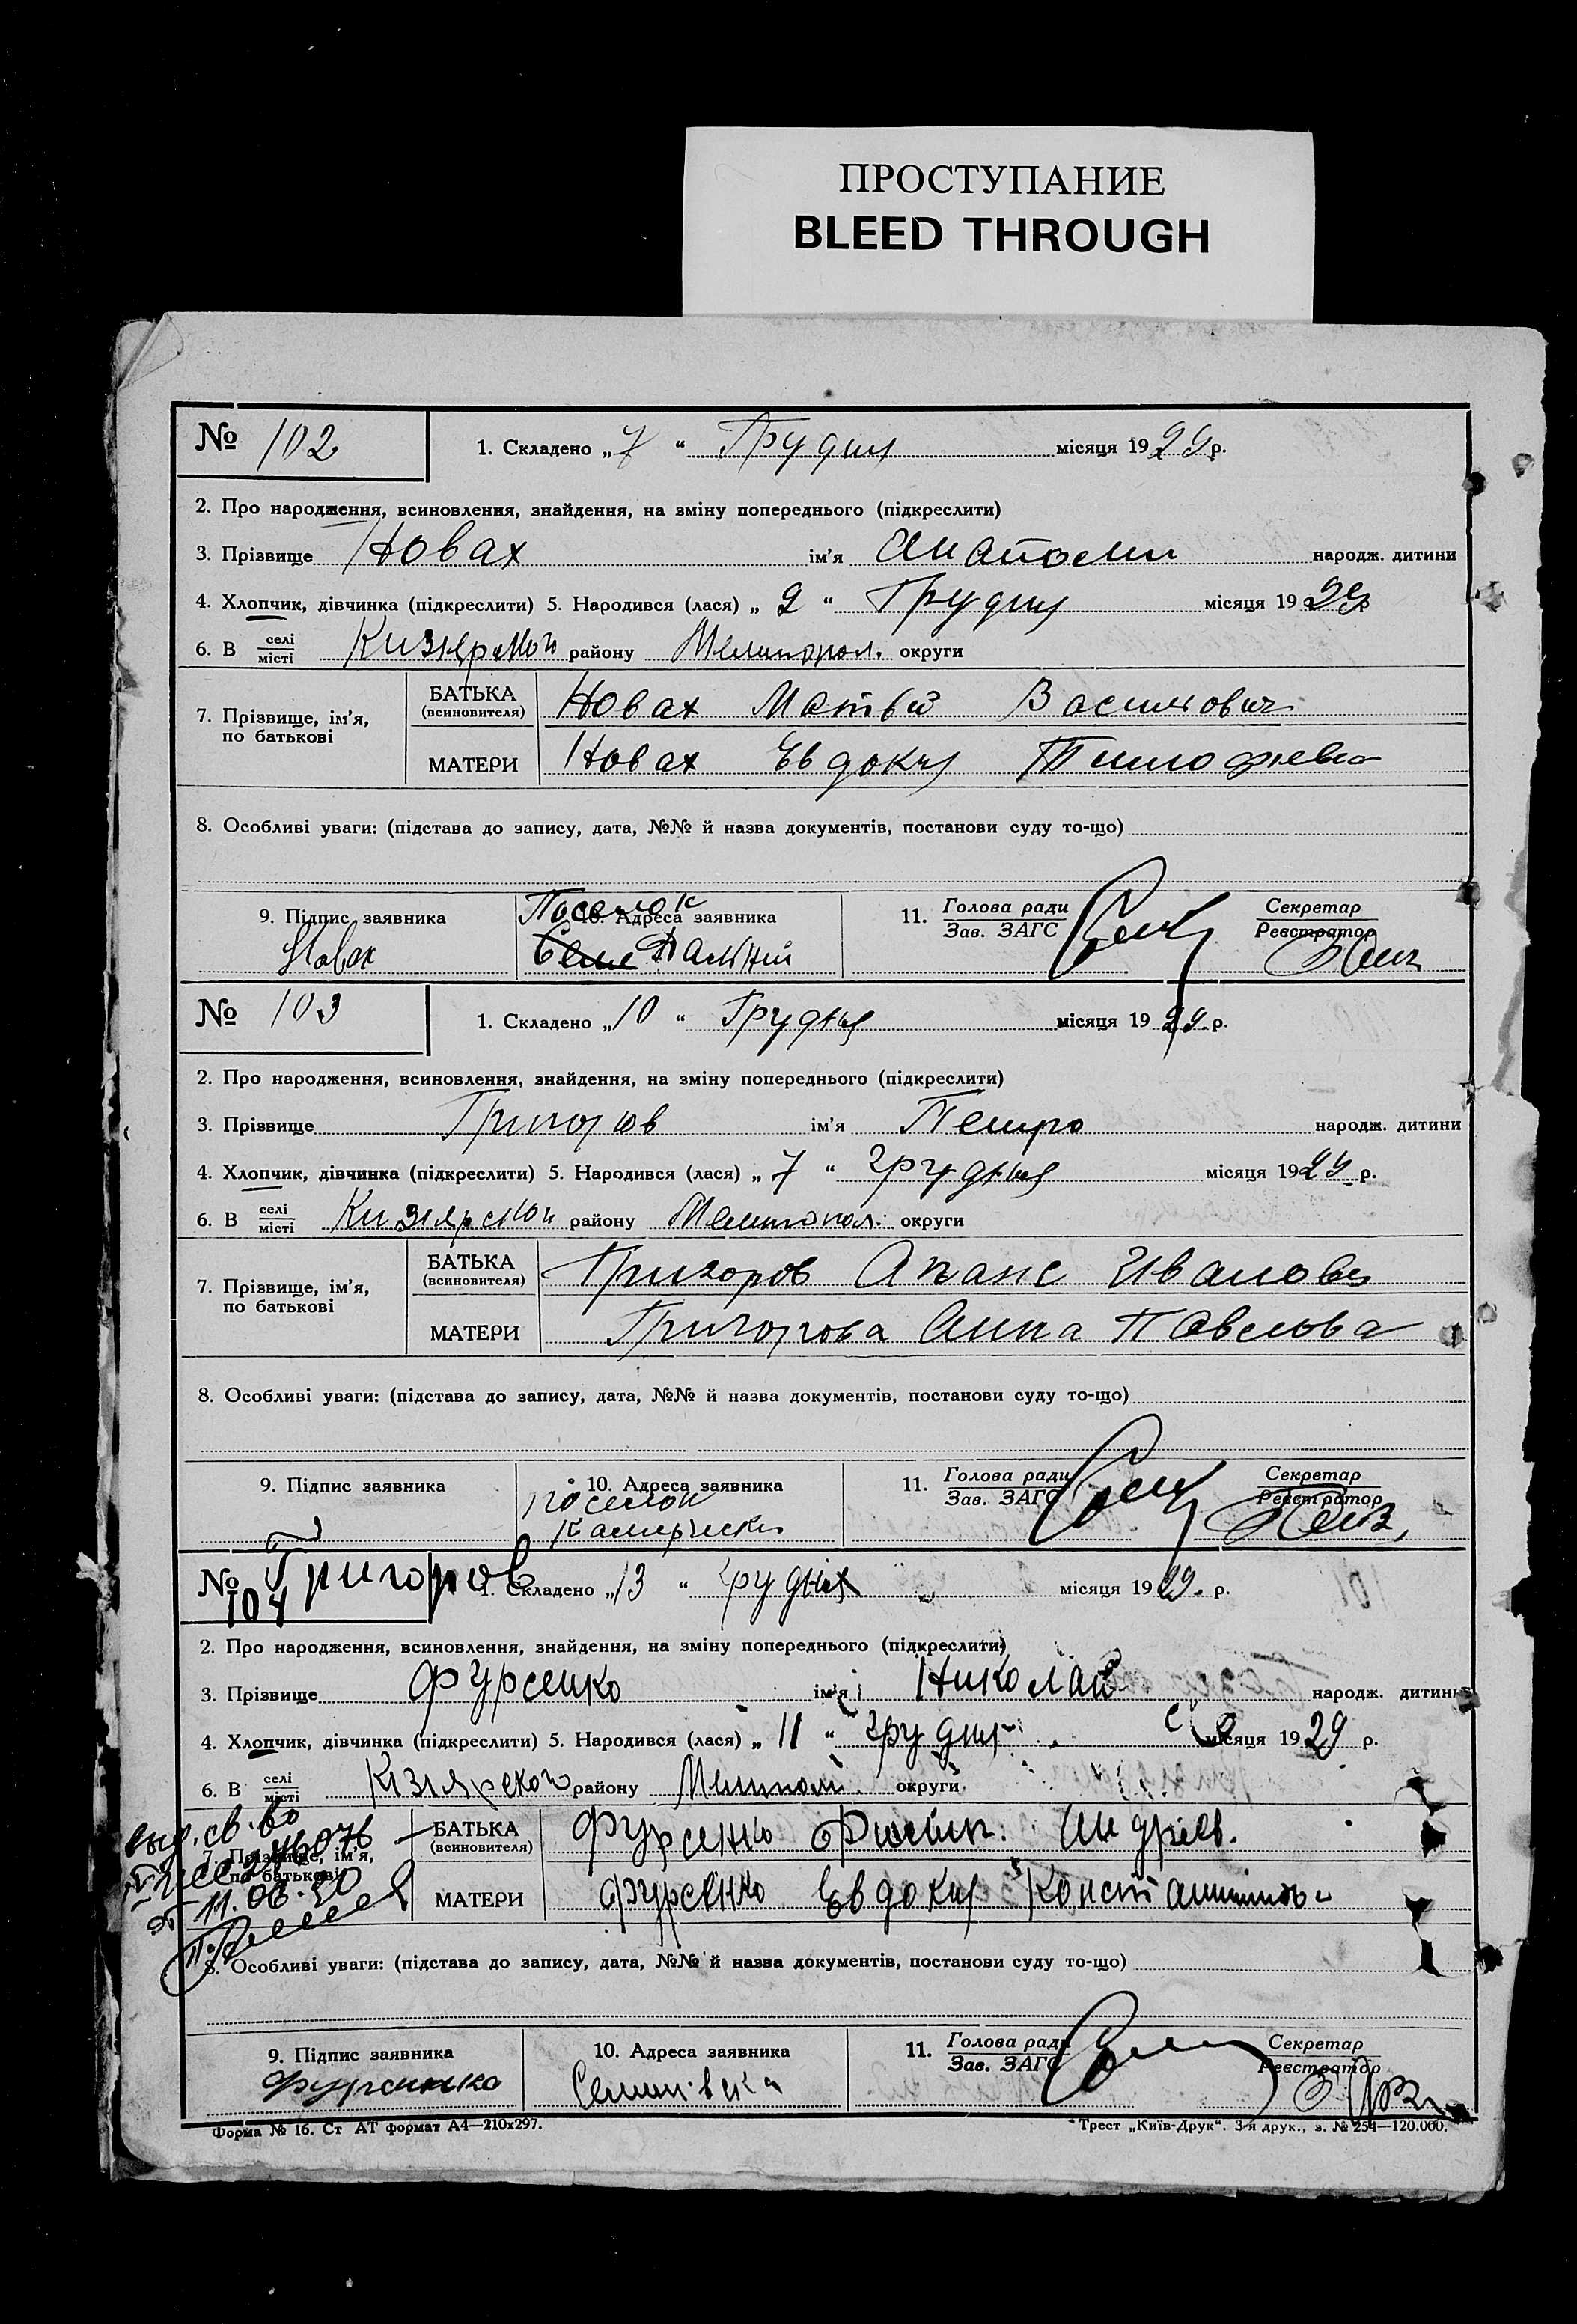 ПРОСТУПАНИЕ
BLEED THROUGH
№ 102 1. Складено „7“ Грудня місяця 1929 р.
2. Про народження, всиновлення, знайдення, на зміну попереднього (підкреслити)
3. Прізвище Новах ім'я Анатоли народж. дитини
4. Хлопчик, дівчинка (підкреслити) 5. Народився (лася) „2“ Грудня місяця 1929 р
6. В селі місті Кизиярского району Мелитопол. округи
7. Прізвище, ім'я, по батькові
БАТЬКА (всиновителя) Новах Матвій Василович
МАТЕРИ Новах Евдокия Тимофіевна
8. Особливі уваги: (підстава до запису, дата, №№ й назва документів, постанови суду то-що)
9. Підпис заявника 10. Адреса заявника 11. Голова ради Зав. ЗАГС Секретар Реєстратор
Новах Поселок Дальний
№ 103 1. Складено „10“ Грудня місяця 1929 р.
2. Про народження, всиновлення, знайдення, на зміну попереднього (підкреслити)
3. Прізвище Григоров ім'я Петро народж. дитини
4. Хлопчик, дівчинка (підкреслити) 5. Народився (лася) „7“ грудня місяця 1929 р.
6. В селі місті Кизиярской району Мелитопол. округи
7. Прізвище, ім'я, по батькові
БАТЬКА (всиновителя) Григоров Апанс Иванов
МАТЕРИ Григорова Анна Павлова
8. Особливі уваги: (підстава до запису, дата, №№ й назва документів, постанови суду то-що)
9. Підпис заявника 10. Адреса заявника 11. Голова ради Зав. ЗАГС Секретар Реєстратор
поселок
Григоров
№ 104 1. Складено „13“ грудня місяця 1929 р.
2. Про народження, всиновлення, знайдення, на зміну попереднього (підкреслити)
3. Прізвище Фурсенко ім'я Николай народж. дитини
4. Хлопчик, дівчинка (підкреслити) 5. Народився (лася) „11“ грудня місяця 1929 р.
6. В селі місті Кізиярского району Мелитопол. округи
выд. св. во
11.06.50
7. Прізвище, ім'я, по батькові
БАТЬКА (всиновителя) Фурсенко Андріев.
МАТЕРИ Фурсенко Евдокия
8. Особливі уваги: (підстава до запису, дата, №№ й назва документів, постанови суду то-що)
9. Підпис заявника 10. Адреса заявника 11. Голова ради Зав. ЗАГС Секретар Реєстратор
Фурсенко
Форма № 16. Ст АТ формат А4—210х297. Трест „Київ-Друк“. 3-я друк., з. № 254—120.000.